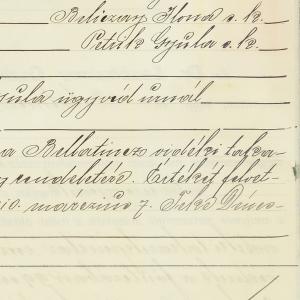 Beliczay Ilona s. k.
Petrik Gyula s. k.
Gyula ügyvéd urnál
a Bellatincz vidéki taka-
rendeltek. Értékét felvet-
910. márczius 7. Teke Dénes-